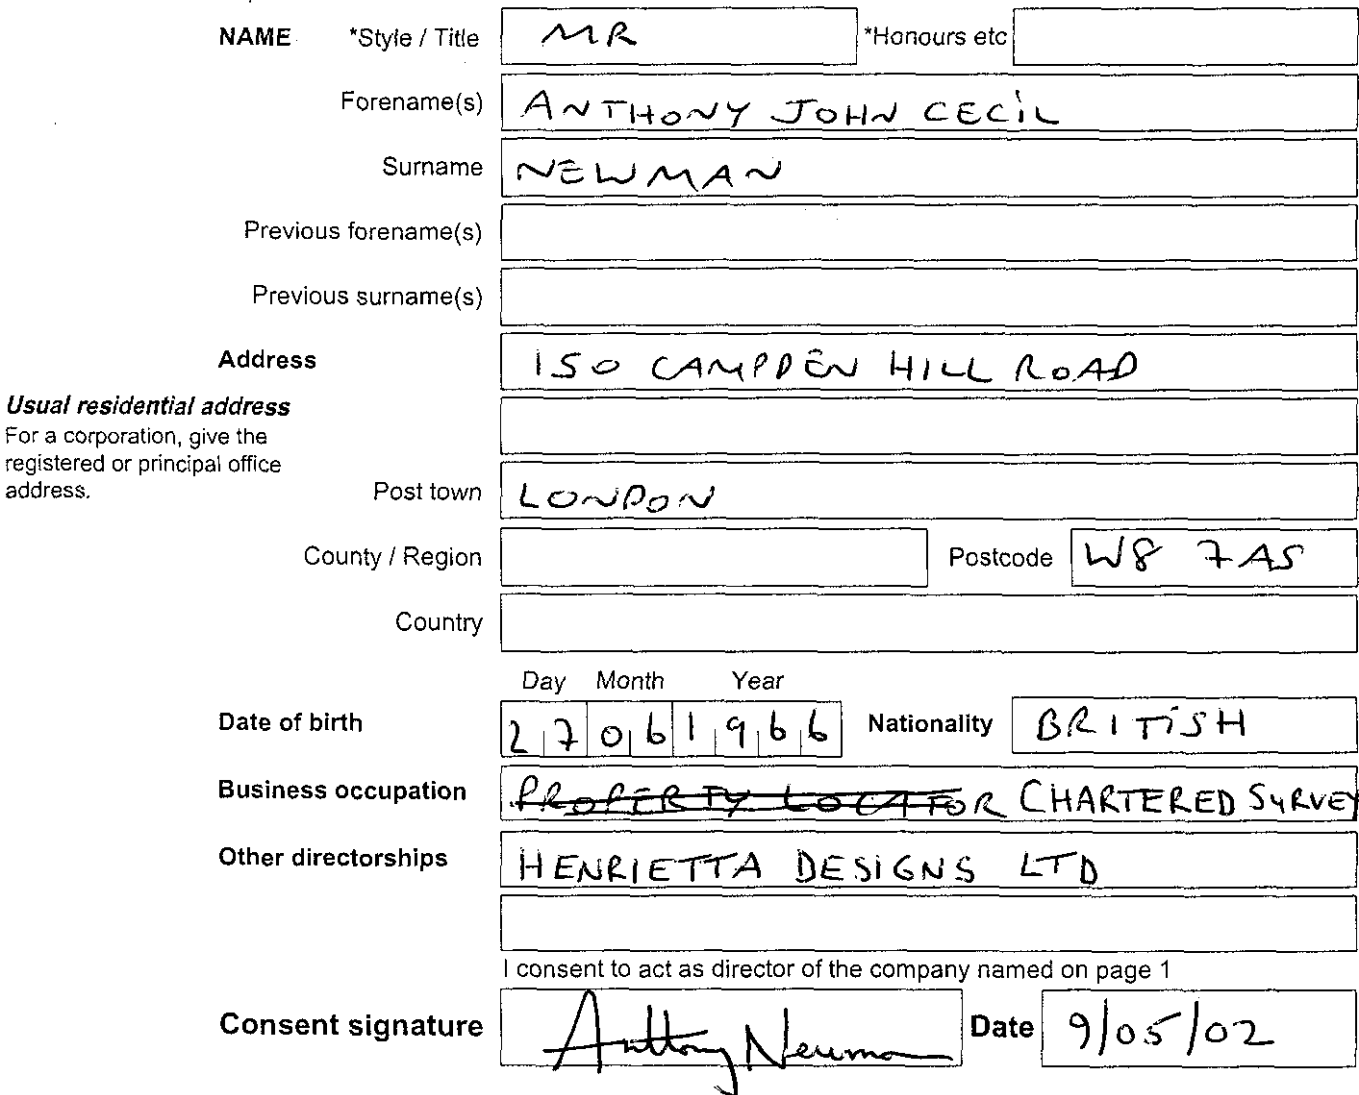 NAME *Style / Title MR *Honours etc
Forename(s) ANTHONY JOHN CECIL
Surname NEWMAN
Previous forename(s)
Previous surname(s)
Address 150 CAMPDEN HILL ROAD
Usual residential address
For a corporation, give the
registered or principal office
address.
Post town LONDON
County / Region Postcode W8 7AS
Country
Day Month Year
Date of birth 27 06 1966 Nationality BRITISH
Business occupation PROPERTY LOCATOR CHARTERED SURVEY
Other directorships HENRIETTA DESIGNS LTD
I consent to act as director of the company named on page 1
Consent signature Anthony Newman Date 9/05/02